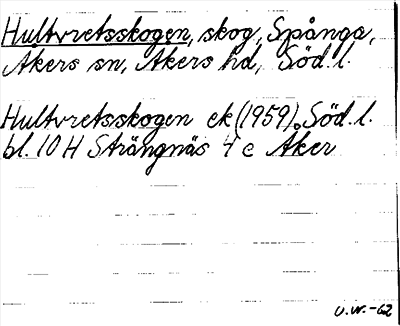 Hultvretsskogen, skog, Spånga,
Åkers sn, Åkers hd, Söd. l.
Hultvretsskogen ek (1959). Söd. l.
bl. 10 H Strängnäs 4 c Åker
U.W.-62